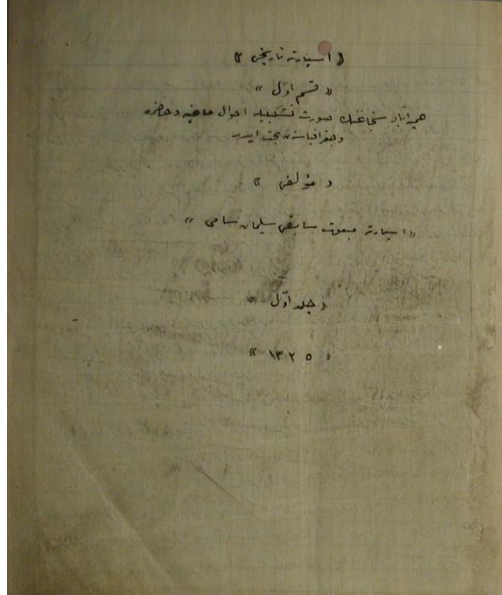 « اسپارته تاریخی »
« قسم اول »
حمیدآباد سنجاغنك صورت تشكیلیله احوال ماضیه وحاضره
وجغرافیاسندن بحث ایدر
« مؤلفی »
« اسپارته مبعوث سابقی سلیمان سامی »
« جلد اول »
« ١٣٢٥ »